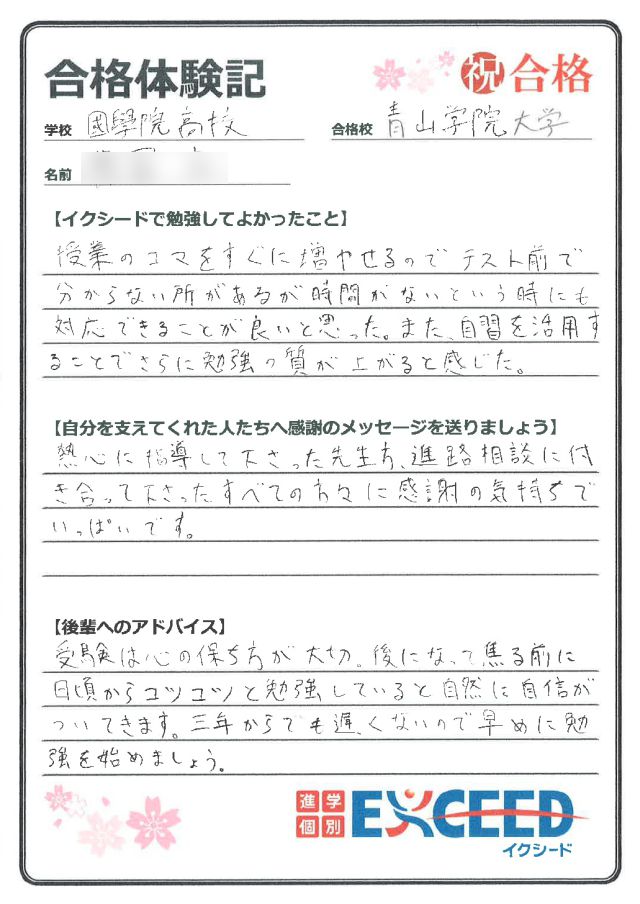 合格体験記
祝 合格
学校 國學院高校
合格校 青山学院大学
名前
【イクシードで勉強してよかったこと】
授業のコマをすぐに増やせるので テスト前で
分からない所があるが時間がないという時にも
対応できることが良いと思った。また、自習を活用す
ることでさらに勉強の質が上がると感じた。
【自分を支えてくれた人たちへ感謝のメッセージを送りましょう】
熱心に指導して下さった先生方、進路相談に付
き合って下さったすべての方々に感謝の気持ちで
いっぱいです。
【後輩へのアドバイス】
受験は心の保ち方が大切。後になって焦る前に
日頃からコツコツと勉強していると自然に自信が
ついてきます。三年からでも遅くないので早めに勉
強を始めましょう。
進学
個別
EXCEED
イクシード